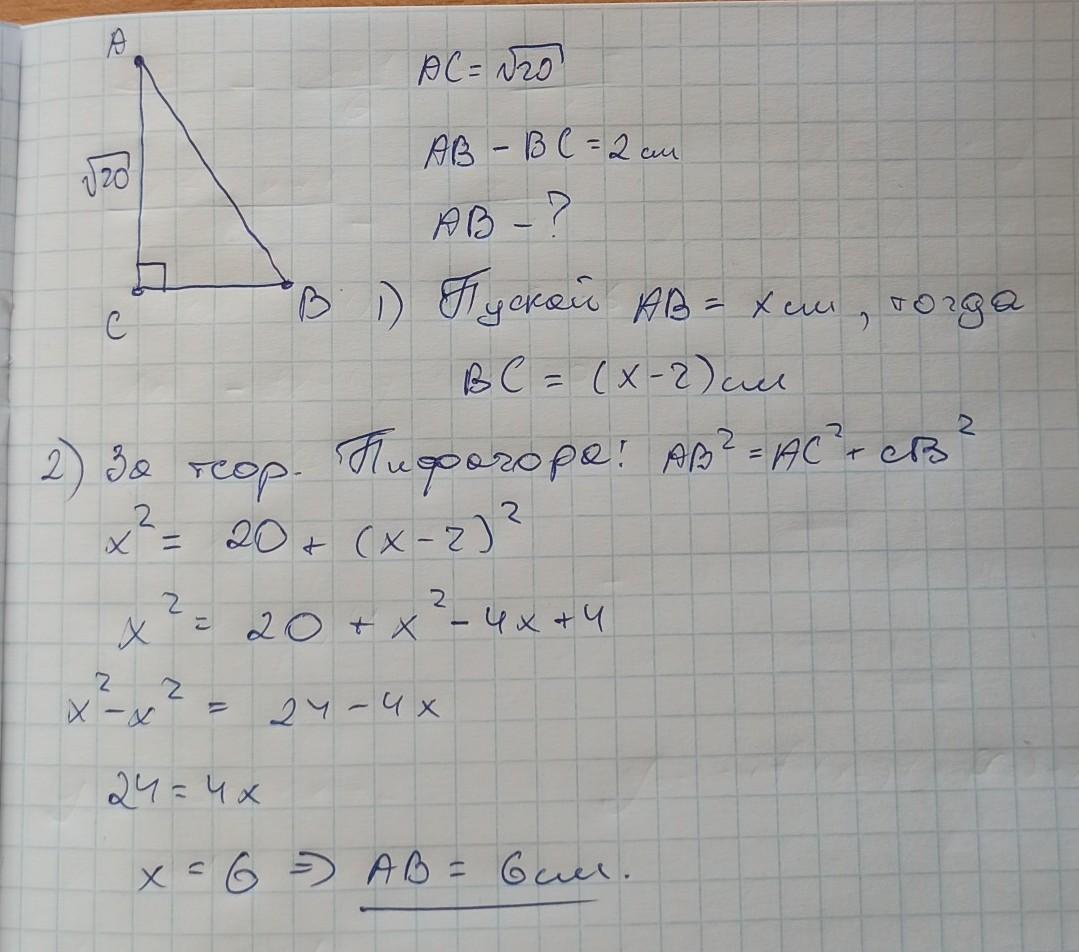 A
√20
C
B
AC = √20
AB - BC = 2 см
AB - ?
1) Пускай AB = x см, тогда
BC = (x-2) см
2) За теор. Пифагора: AB² = AC² + CB²
x² = 20 + (x-2)²
x² = 20 + x² - 4x + 4
x² - x² = 24 - 4x
24 = 4x
x = 6 => AB = 6 см.